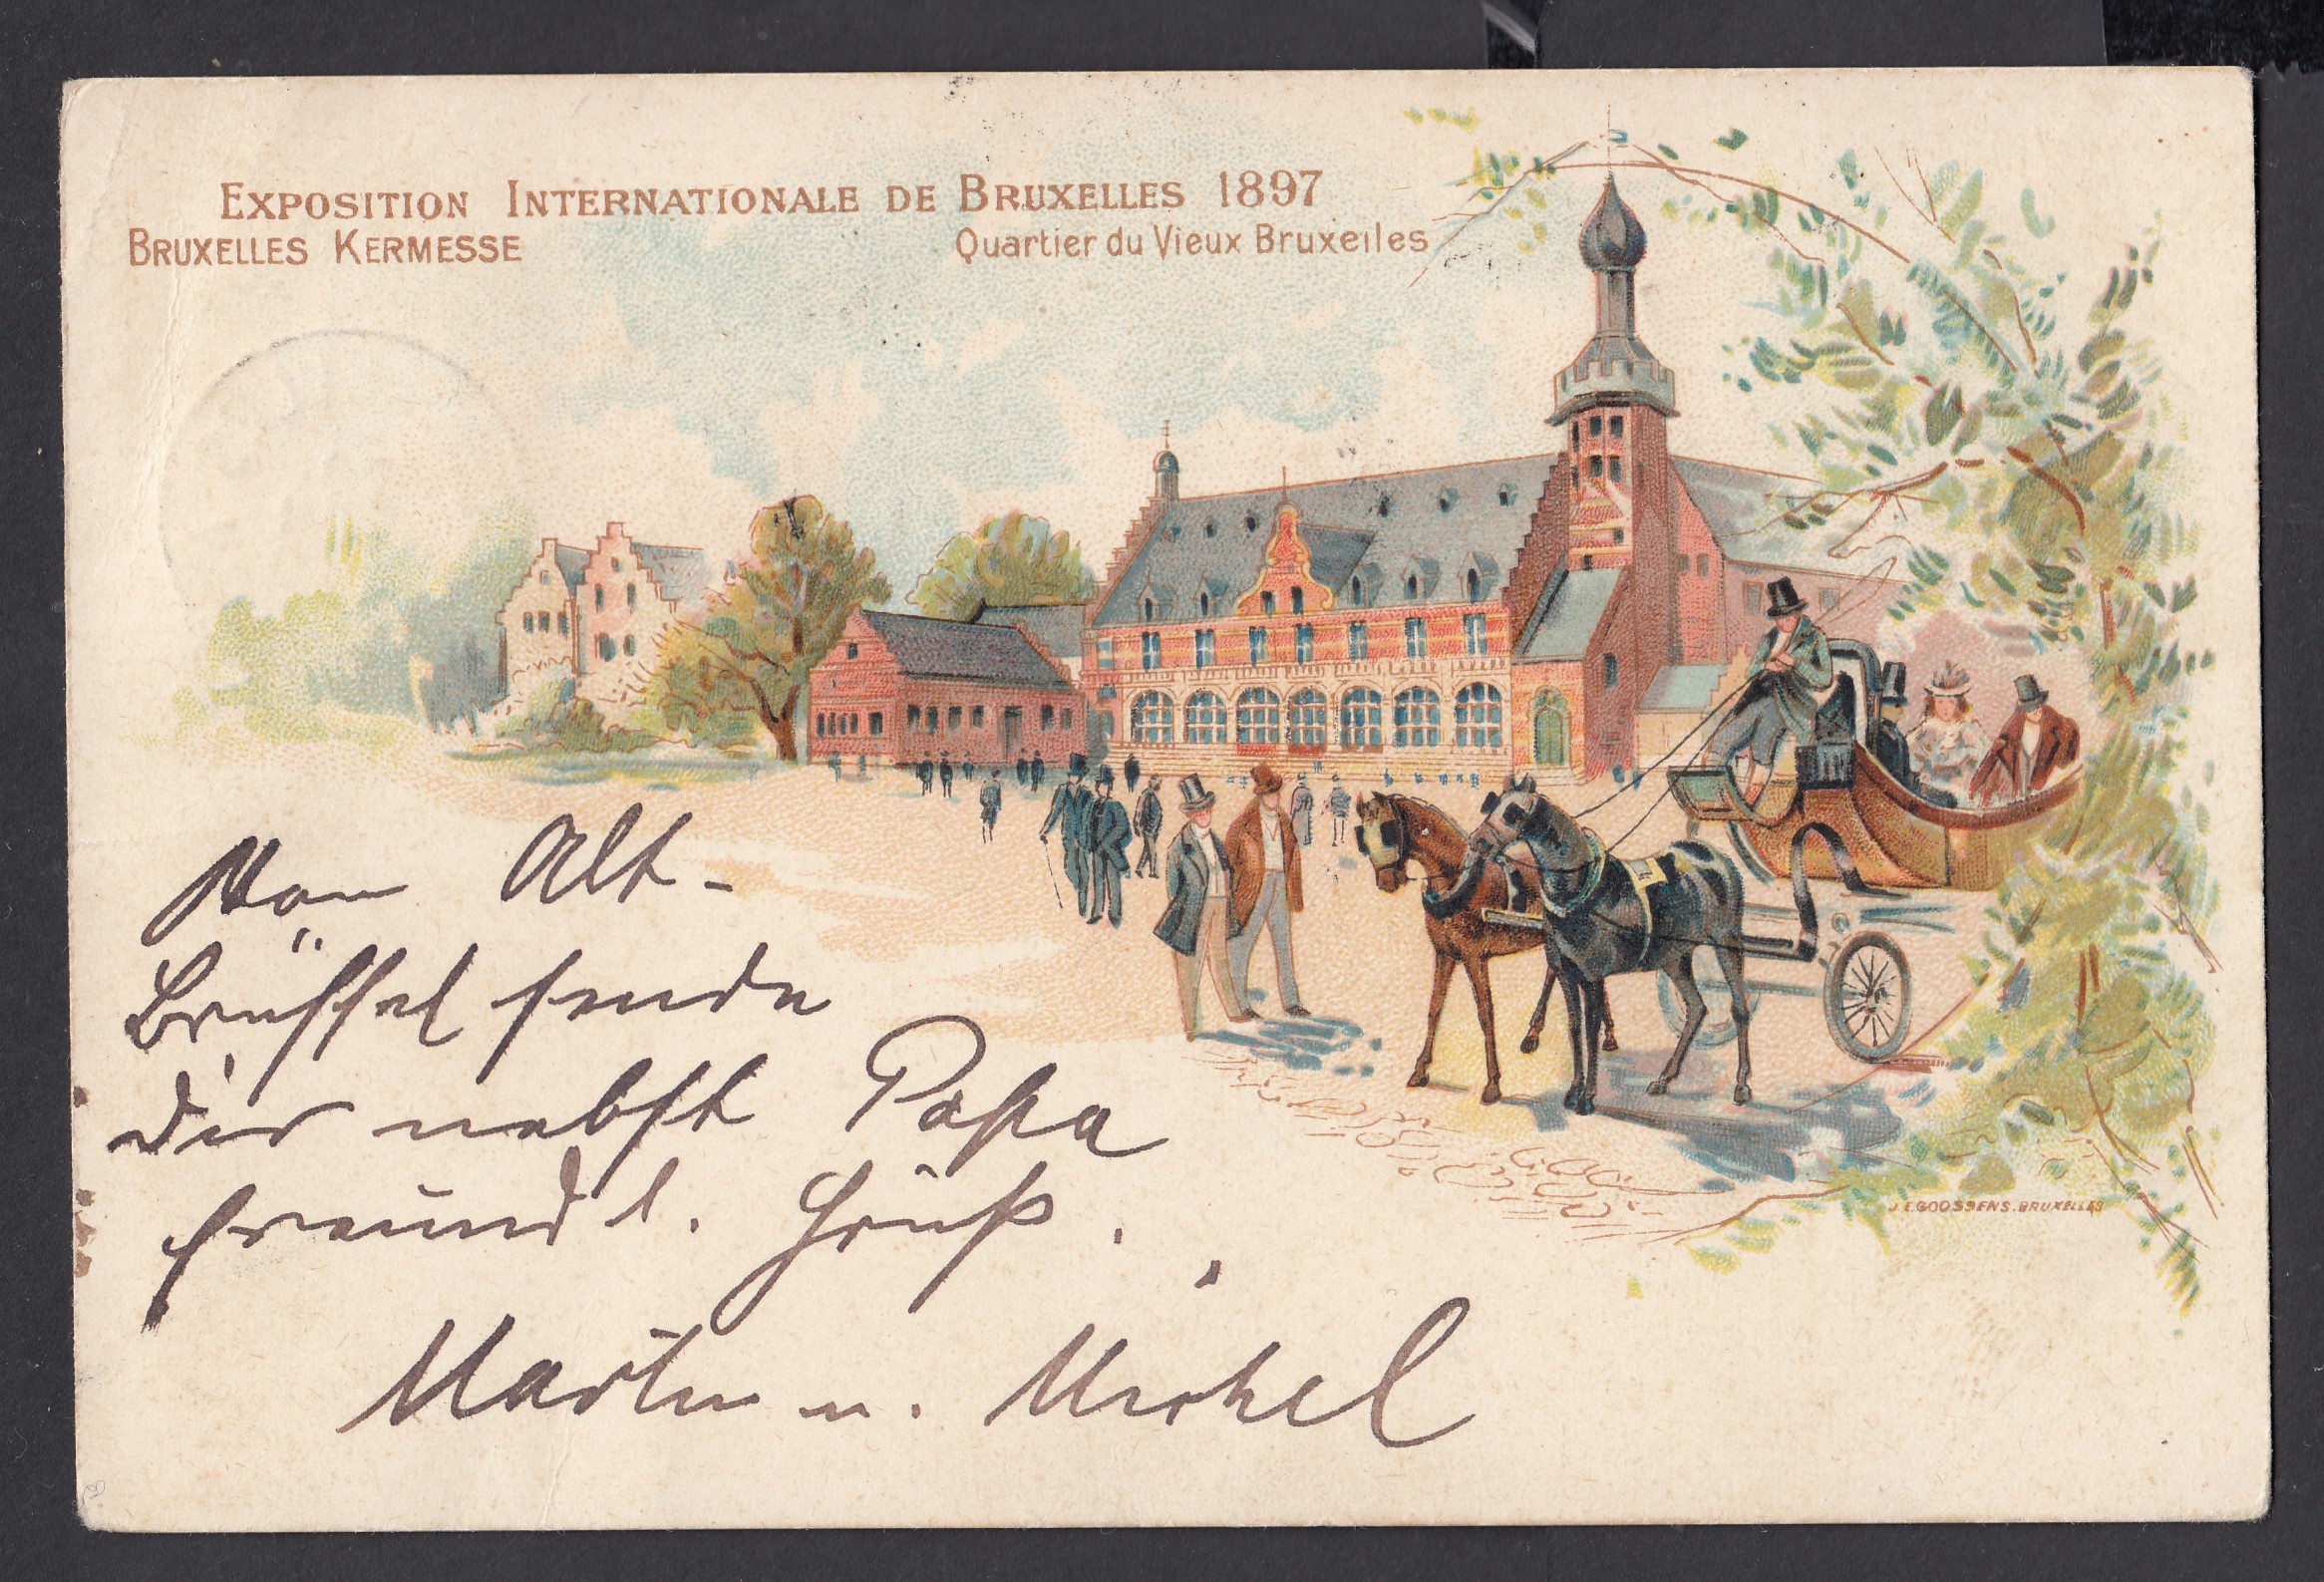 EXPOSITION INTERNATIONALE DE BRUXELLES 1897
BRUXELLES KERMESSE
Quartier du Vieux Bruxelles
Von Alt-
Brüssel sende
dir nebst Papa
freundl. Gruß.
Martin u. Michel
J.E.GOOSSENS.BRUXELLES